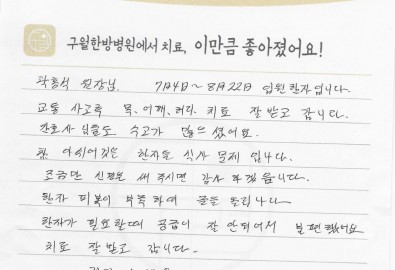 구월한방병원에서 치료, 이만큼 좋아졌어요!
곽흥석 원장님. 7月4日~8月22日 입원 환자입니다.
교통 사고로 목, 어깨, 허리 치료 잘 받고 갑니다.
간호사 님들도 수고가 많으셨어요.
아쉬어있는 한가지는 식사 문제 입니다.
조금만 신경을 써 주시면 감사 하겠습니다.
환자 피복이 부족 하여 글을 올립니다
환자가 필요할때 공급이 잘 안되어서 불편했어요
치료 잘 받고 갑니다.